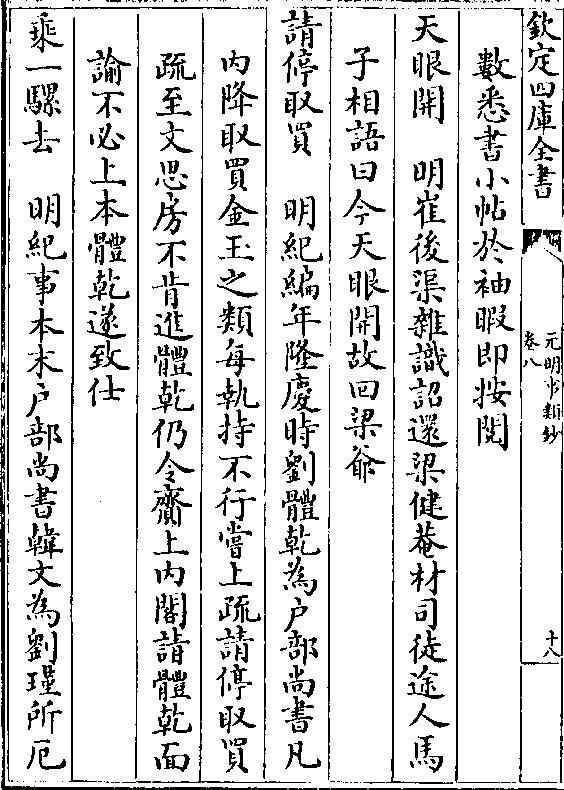 欽定四庫全書
元明事類鈔
卷八
十八
數悉書小帖於袖暇即按閱
天眼開　明崔後渠雜識詔還梁健菴材司徒途人馬
子相語曰今天眼開故回梁爺
請停取買　明紀編年隆慶時劉體乾為户部尚書凡
内降取買金玉之類每執持不行嘗上疏請停取買
疏至文思房不肯進體乾仍令齎上内閣請體乾面
諭不必上本體乾遂致仕
乘一騾去　明紀事本末户部尚書韓文為劉瑾所厄